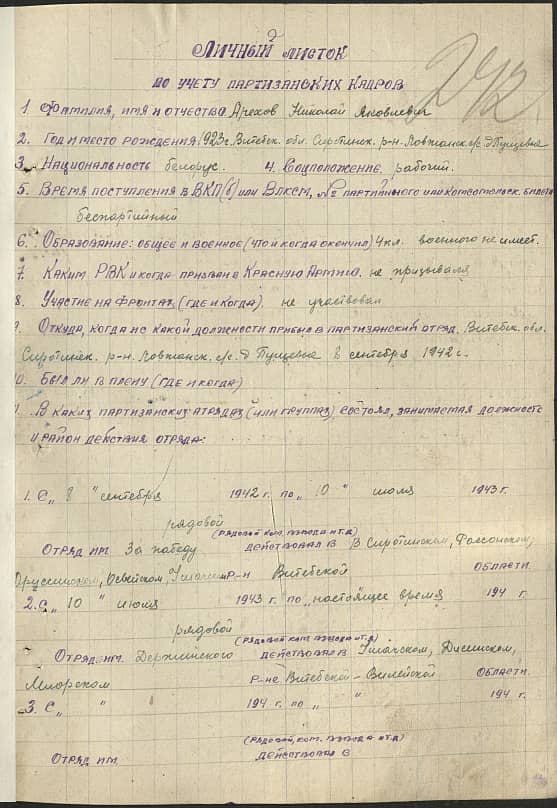 2
Личный листок
242
по учету партизанских кадров
1. Фамилия, имя и отчество Арехов Николай Яковлевич
2. Год и место рождения: 1923 г. Витебск. обл. Сиротинск. р-н. Ловжанск. с/с д. Пущевка
3. Национальность белорус. 4. Соцположение рабочий.
5. Время поступления в ВКП(б) или ВЛКСМ, № партийного или комсомольск. билета
беспартийный
6. Образование: общее и военное (что и когда окончил) 4 кл. военного не имеет.
7. Каким РВК и когда призван в Красную Армию. не призывался
8. Участие на фронтах (где и когда). не участвовал
9. Откуда, когда и с какой должности прибыл в партизанский отряд. Витебск. обл.
Сиротинск. р-н. Ловжанск. с/с. д. Пущевка 8 сентября 1942 г.
10. Был ли в плену (где и когда)
11. В каких партизанских отрядах (или группах) состоял, занимаемая должность
и район действия отряда:
1. С „ 8 " сентября 1942 г. по „ 10 " июля 1943 г.
рядовой
(рядовой ком. взвода и т.д)
Отряд им. За победу действовал в В Сиротинском, Россонском,
Дриссинском, Освейском, Ушачском р-н Витебской области
2. С „ 10 " июля 1943 г. по „ настоящее время 194 г
рядовой
(рядовой ком. взвода и т.д)
Отряд им. Держинского действовал в Ушачском, Дисненском,
Миорском р-не Витебской - Вилейской области.
3. С „ " 194 г. по „ " 194 г.
(рядовой, ком. взвода и т.д)
Отряд им. действовал в